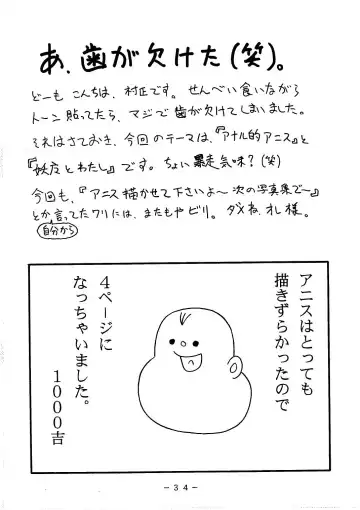 あ、歯が欠けた(笑)。
どーも こんちは、村正です。せんべい食いながら
トーン貼ってたら、マジで歯が欠けてしまいました。
それはさておき、今回のテーマは、『アナル的アニス』と
『妖友とわたし』です。ちょい暴走気味?(笑)
今回も、『アニス描かせて下さいよ〜 次の写真集で〜』
とか言ってたワリには、またもやビリ。ダメね、オレ様。
自分から
アニスはとっても
描きずらかったので
4ページに
なっちゃいました。
1000吉
-34-